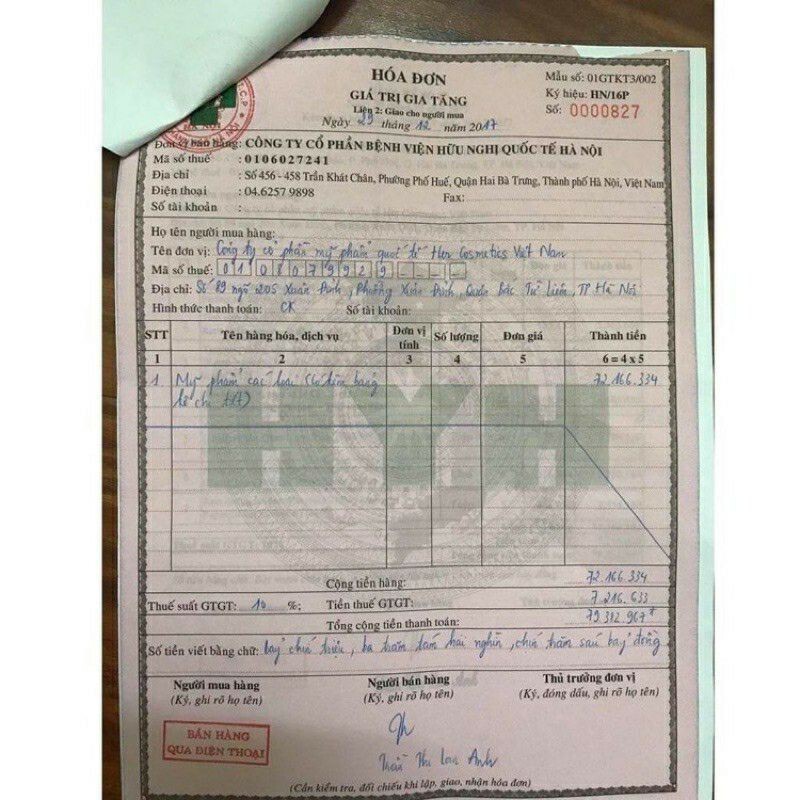 HÓA ĐƠN
GIÁ TRỊ GIA TĂNG
Liên 2: Giao cho người mua
Ngày 29 tháng 12 năm 2017
Mẫu số: 01GTKT3/002
Ký hiệu: HN/16P
Số: 0000827
Đơn vị bán hàng: CÔNG TY CỔ PHẦN BỆNH VIỆN HỮU NGHỊ QUỐC TẾ HÀ NỘI
Mã số thuế : 0106027241
Địa chỉ : Số 456 - 458 Trần Khát Chân, Phường Phố Huế, Quận Hai Bà Trưng, Thành phố Hà Nội, Việt Nam
Điện thoại : 04.6257 9898 Fax:
Số tài khoản :
Họ tên người mua hàng:
Tên đơn vị: Công ty cổ phần mỹ phẩm quốc tế Her Cosmetics Việt Nam
Mã số thuế: 0108079929
Địa chỉ: Số 89 ngõ 205 Xuân Đỉnh, Phường Xuân Đỉnh, Quận Bắc Từ Liêm, TP Hà Nội
Hình thức thanh toán: CK Số tài khoản:
STT Tên hàng hóa, dịch vụ Đơn vị tính Số lượng Đơn giá Thành tiền
1 2 3 4 5 6 = 4 x 5
1. Mỹ phẩm các loại (có kèm bảng 72.166.334
kê chi tiết)
Cộng tiền hàng: 72.166.334
Thuế suất GTGT: 10 %; Tiền thuế GTGT: 7.216.633
Tổng cộng tiền thanh toán: 79.382.967
Số tiền viết bằng chữ: bảy chín triệu, ba trăm tám hai nghìn, chín trăm sáu bảy đồng
Người mua hàng Người bán hàng Thủ trưởng đơn vị
(Ký, ghi rõ họ tên) (Ký, ghi rõ họ tên) (Ký, đóng dấu, ghi rõ họ tên)
BÁN HÀNG
QUA ĐIỆN THOẠI
Trần Thị Lan Anh
(Cần kiểm tra, đối chiếu khi lập, giao, nhận hóa đơn)